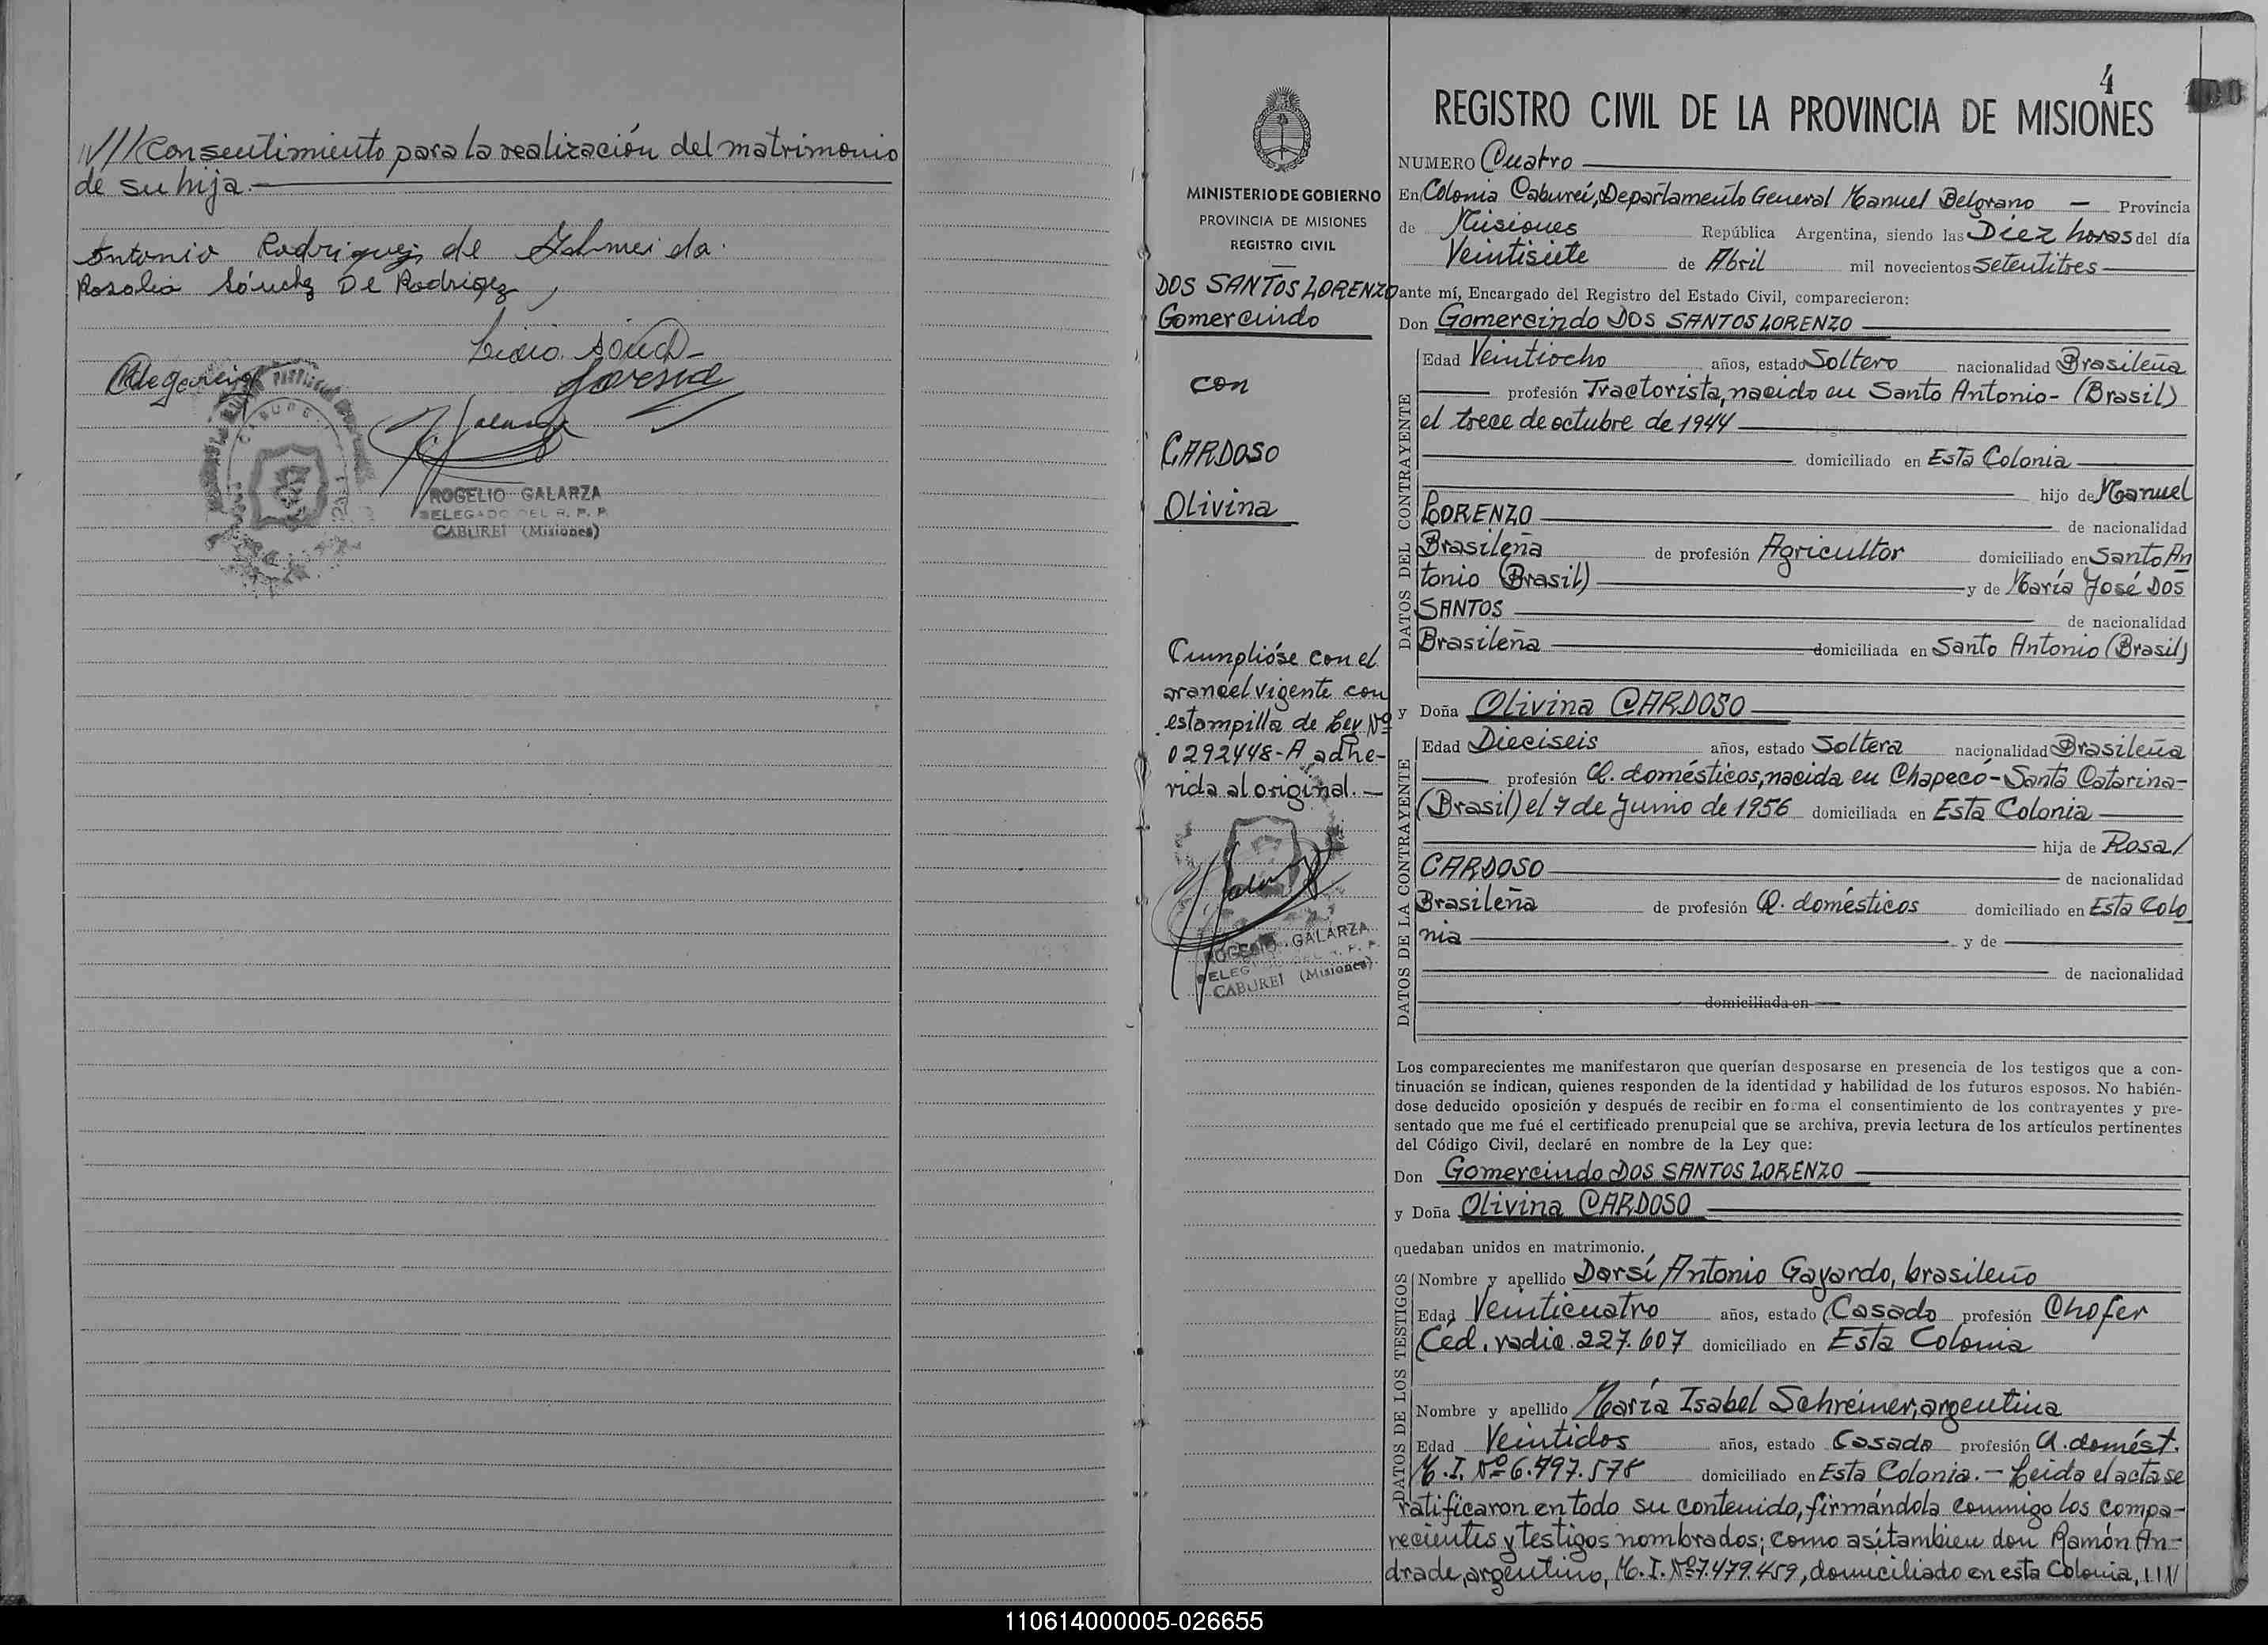 IV///Consentimiento para la realización del matrimonio
de su hija.
Antonio Rodriguez de
Rosalia Sánchez De Rodriguez
ROGELIO GALARZA
DELEGADO DEL R. P. P.
CABUREI (Misiones)
4
REGISTRO CIVIL DE LA PROVINCIA DE MISIONES
MINISTERIO DE GOBIERNO
PROVINCIA DE MISIONES
REGISTRO CIVIL
DOS SANTOS LORENZO
Gomercindo
con
CARDOSO
Olivina
Cumplióse con el
arancel vigente con
estampilla de Ley Nº
0292448-A adhe-
rida al original.
ROGELIO GALARZA
DELEGADO DEL R. P. P.
CABUREI (Misiones)
NUMERO Cuatro
En Colonia Cabureí, Departamento General Manuel Belgrano - Provincia
de Misiones República Argentina, siendo las Diez horas del día
Veintisiete de Abril mil novecientos setentitres
ante mí, Encargado del Registro del Estado Civil, comparecieron:
Don Gomercindo DOS SANTOS LORENZO
DATOS DEL CONTRAYENTE
Edad Veintiocho años, estado Soltero nacionalidad Brasileña
profesión Tractorista, nacido en Santo Antonio- (Brasil)
el trece de octubre de 1944
domiciliado en Esta Colonia
hijo de Manuel
LORENZO de nacionalidad
Brasileña de profesión Agricultor domiciliado en Santo An
tonio (Brasil) y de María José DOS
SANTOS de nacionalidad
Brasileña domiciliada en Santo Antonio (Brasil)
y Doña Olivina CARDOSO
DATOS DE LA CONTRAYENTE
Edad Dieciseis años, estado Soltera nacionalidad Brasileña
profesión Q. domésticos, nacida en Chapecó-Santa Catarina-
(Brasil) el 7 de Junio de 1956 domiciliada en Esta Colonia
hija de Rosa/
CARDOSO de nacionalidad
Brasileña de profesión Q. domésticos domiciliado en Esta Colo
nia y de
de nacionalidad
domiciliada en
Los comparecientes me manifestaron que querían desposarse en presencia de los testigos que a con-
tinuación se indican, quienes responden de la identidad y habilidad de los futuros esposos. No habién-
dose deducido oposición y después de recibir en forma el consentimiento de los contrayentes y pre-
sentado que me fué el certificado prenupcial que se archiva, previa lectura de los artículos pertinentes
del Código Civil, declaré en nombre de la Ley que:
Don Gomercindo DOS SANTOS LORENZO
y Doña Olivina CARDOSO
quedaban unidos en matrimonio.
DATOS DE LOS TESTIGOS
Nombre y apellido Darsí Antonio Gayardo, brasileño
Edad Veinticuatro años, estado Casado profesión Chofer
Céd. radic. 227.607 domiciliado en Esta Colonia
Nombre y apellido María Isabel Schreiner, argentina
Edad Veintidos años, estado Casada profesión Q. domést.
M.I. Nº 6.797.578 domiciliado en Esta Colonia.- Leida el acta se
ratificaron en todo su contenido, firmándola conmigo los compa-
recientes y testigos nombrados; como así tambien don Ramón An-
drade, argentino, M.I. Nº 7.479.459, domiciliado en esta Colonia, ////
110614000005-026655